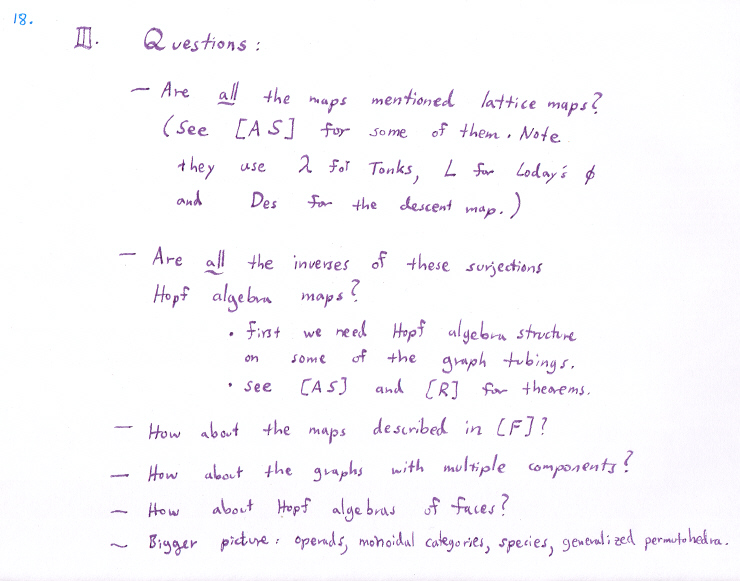 18.
III. Questions:
— Are all the maps mentioned lattice maps?
(See [AS] for some of them. Note
they use λ for Tonks, L for Loday's ϕ
and Des for the descent map.)
— Are all the inverses of these surjections
Hopf algebra maps?
• first we need Hopf algebra structure
on some of the graph tubings.
• see [AS] and [R] for theorems.
— How about the maps described in [F]?
— How about the graphs with multiple components?
— How about Hopf algebras of faces?
~ Bigger picture: operads, monoidal categories, species, generalized permutohedra.